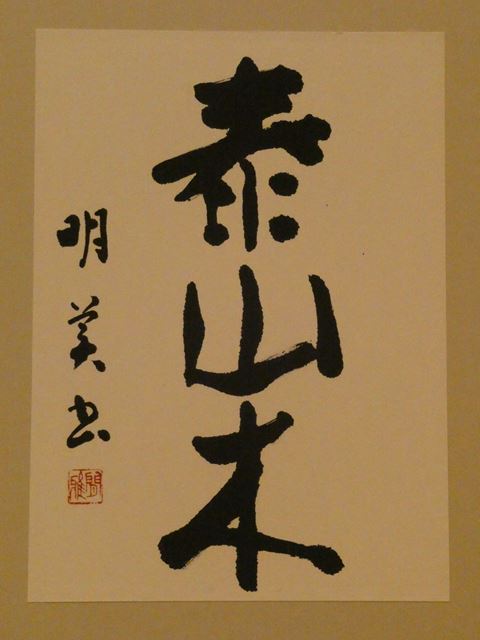 泰山木
明美书